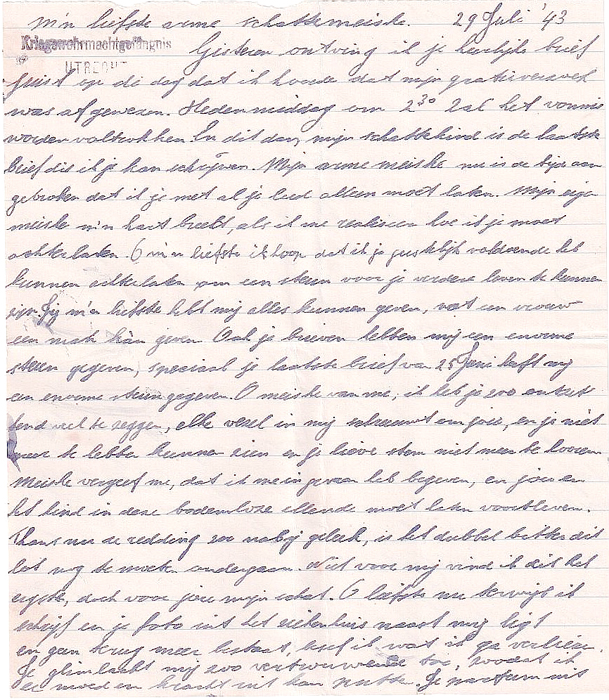 M'n liefste arme schattemeiske. 29 Juli '43
Kriegswehrmachtgefängnis
UTRECHT
Gisteren ontving ik je heerlijke brief
juist op de dag dat ik hoorde dat mijn gratieverzoek
was afgewezen. Hedenmiddag om 2³⁰ zal het vonnis
worden voltrokken. En dit dan, mijn schattekind is de laatste
brief die ik je kan schrijven. Mijn arme meiske nu is de tijd aan
gebroken dat ik je met al je leed alleen moet laten. Mijn eigen
meiske m'n hart breekt, als ik me realiseer hoe ik je moet
achterlaten. O m'n liefste ik hoop dat ik je geestelijk voldoende heb
kunnen achterlaten om een steun voor je verdere leven te kunnen
zijn. Jij m'n liefste hebt mij alles kunnen geven, wat een vrouw
een man kàn geven. Ook je brieven hebben mij een enorme
steun gegeven, speciaal je laatste brief van 25 Juni heeft mij
een enorme steun gegeven. O meiske van me, ik heb je zoo ontzet
tend veel te zeggen, elke vezel in mij schreeuwt om jou, en je niet
meer te hebben kunnen zien en je lieve stem niet meer te hooren.
Meiske vergeef me, dat ik me in gevaar heb begeven, en jou en
het kind in deze bodemloze ellende moet laten voortleven.
Thans nu de redding zoo nabij geleek, is het dubbel bitter dit
lot nog te moeten ondergaan. Niet voor mij vind ik dit het
ergste, doch voor jou mijn schat. O liefste nu terwijl ik
schrijf en je foto uit het ziekenhuis naast mij ligt
en geen terug meer bestaat, besef ik wat ik ga verliezen.
Je glimlacht mij zoo vertrouwend toe, zoodat ik
er moed en kracht uit kan putten. Je